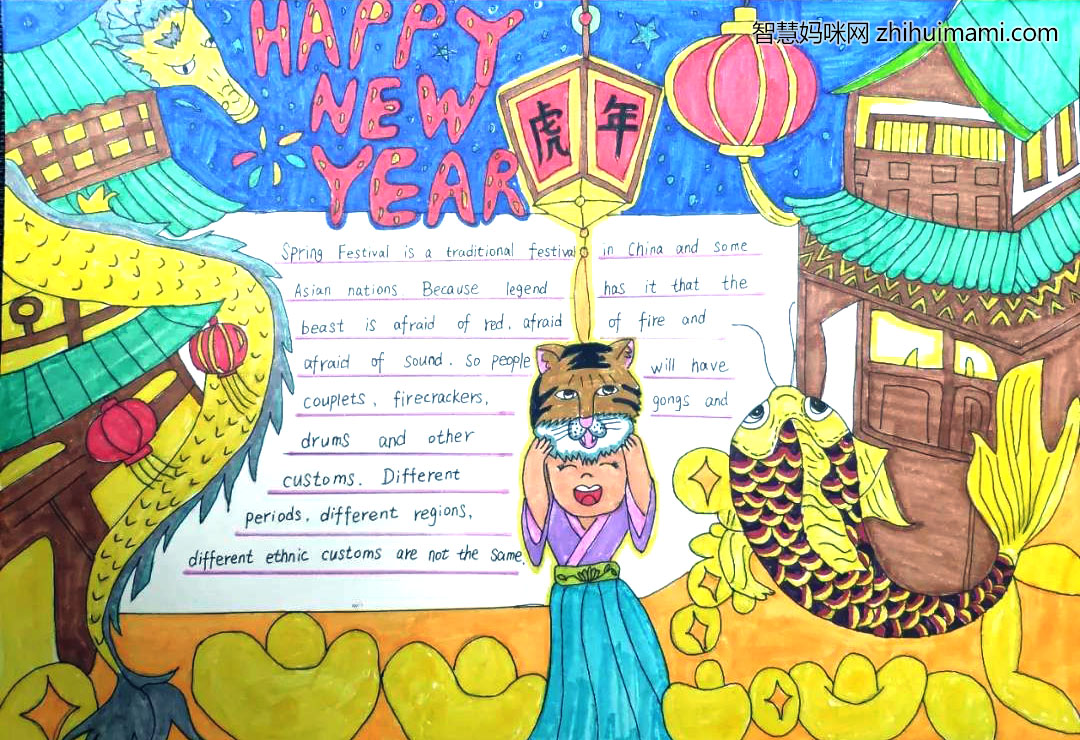 智慧妈咪网 zhihuimami.com
HAPPY
NEW
YEAR
虎年
Spring Festival is a traditional festival in China and some
Asian nations. Because legend has it that the
beast is afraid of red, afraid of fire and
afraid of sound. So people will have
couplets, firecrackers, gongs and
drums and other
customs. Different
periods, different regions,
different ethnic customs are not the same.